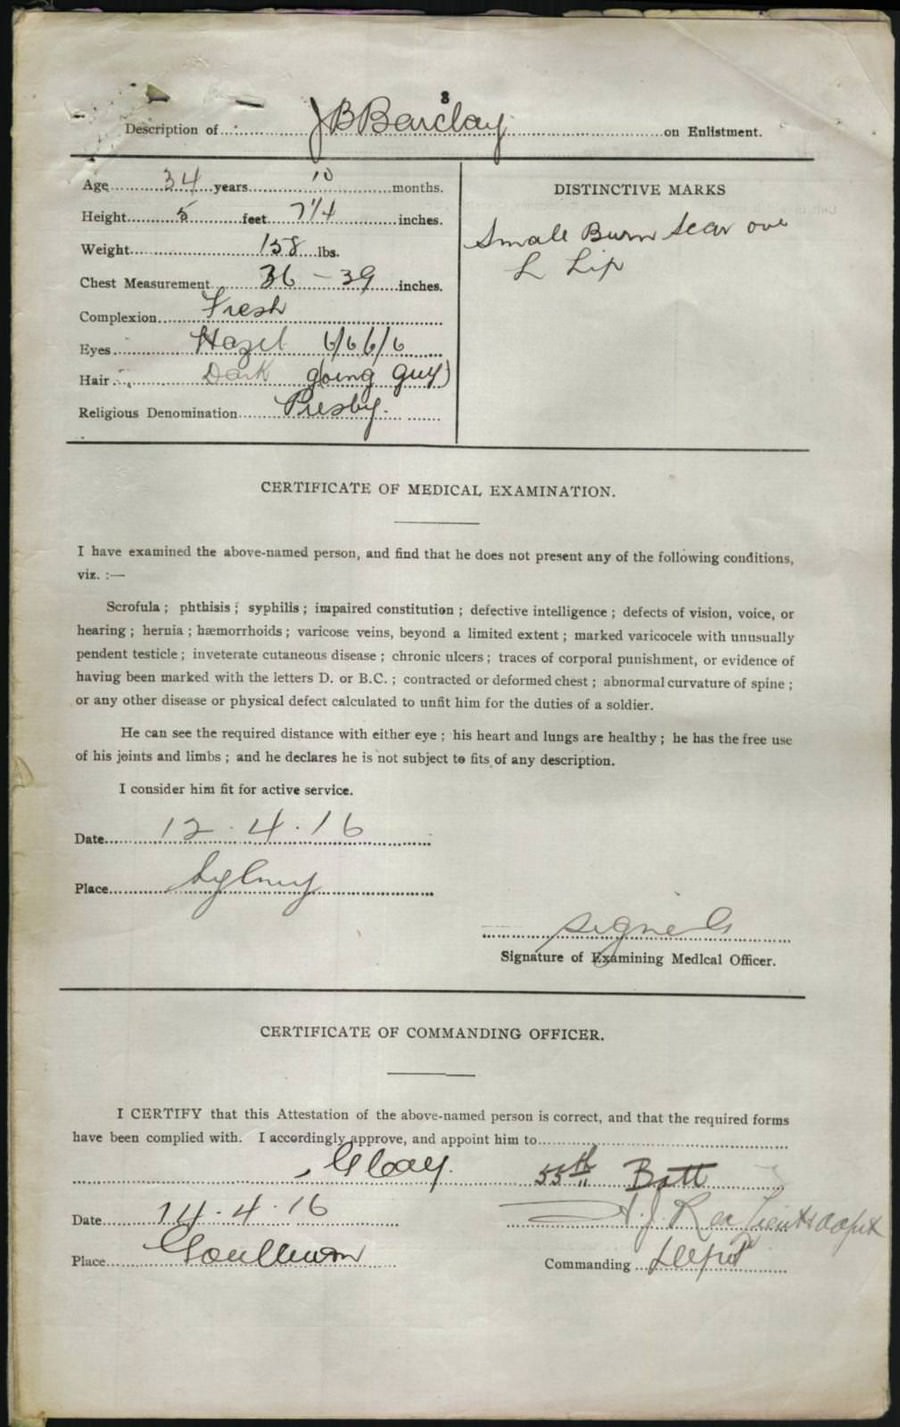 3
Description of J B Barclay on Enlistment.
Age 34 years 10 months.
Height 5 feet 7 1/4 inches.
Weight 158 lbs.
Chest Measurement 36 – 39 inches.
Complexion Fresh
Eyes Hazel 6/6 6/6
Hair Dark going
Religious Denomination Presby.
DISTINCTIVE MARKS
Small Burn Scar
L Lip
CERTIFICATE OF MEDICAL EXAMINATION.
I have examined the above-named person, and find that he does not present any of the following conditions,
viz. :—
Scrofula ; phthisis ; syphilis ; impaired constitution ; defective intelligence ; defects of vision, voice, or
hearing ; hernia ; hæmorrhoids ; varicose veins, beyond a limited extent ; marked varicocele with unusually
pendent testicle ; inveterate cutaneous disease ; chronic ulcers ; traces of corporal punishment, or evidence of
having been marked with the letters D. or B.C. ; contracted or deformed chest ; abnormal curvature of spine ;
or any other disease or physical defect calculated to unfit him for the duties of a soldier.
He can see the required distance with either eye ; his heart and lungs are healthy ; he has the free use
of his joints and limbs ; and he declares he is not subject to fits of any description.
I consider him fit for active service.
Date 12.4.16
Place Sydney
Signed
Signature of Examining Medical Officer.
CERTIFICATE OF COMMANDING OFFICER.
I CERTIFY that this Attestation of the above-named person is correct, and that the required forms
have been complied with. I accordingly approve, and appoint him to
55th Batt
Date 14.4.16
Place Goulburn
Commanding Depot